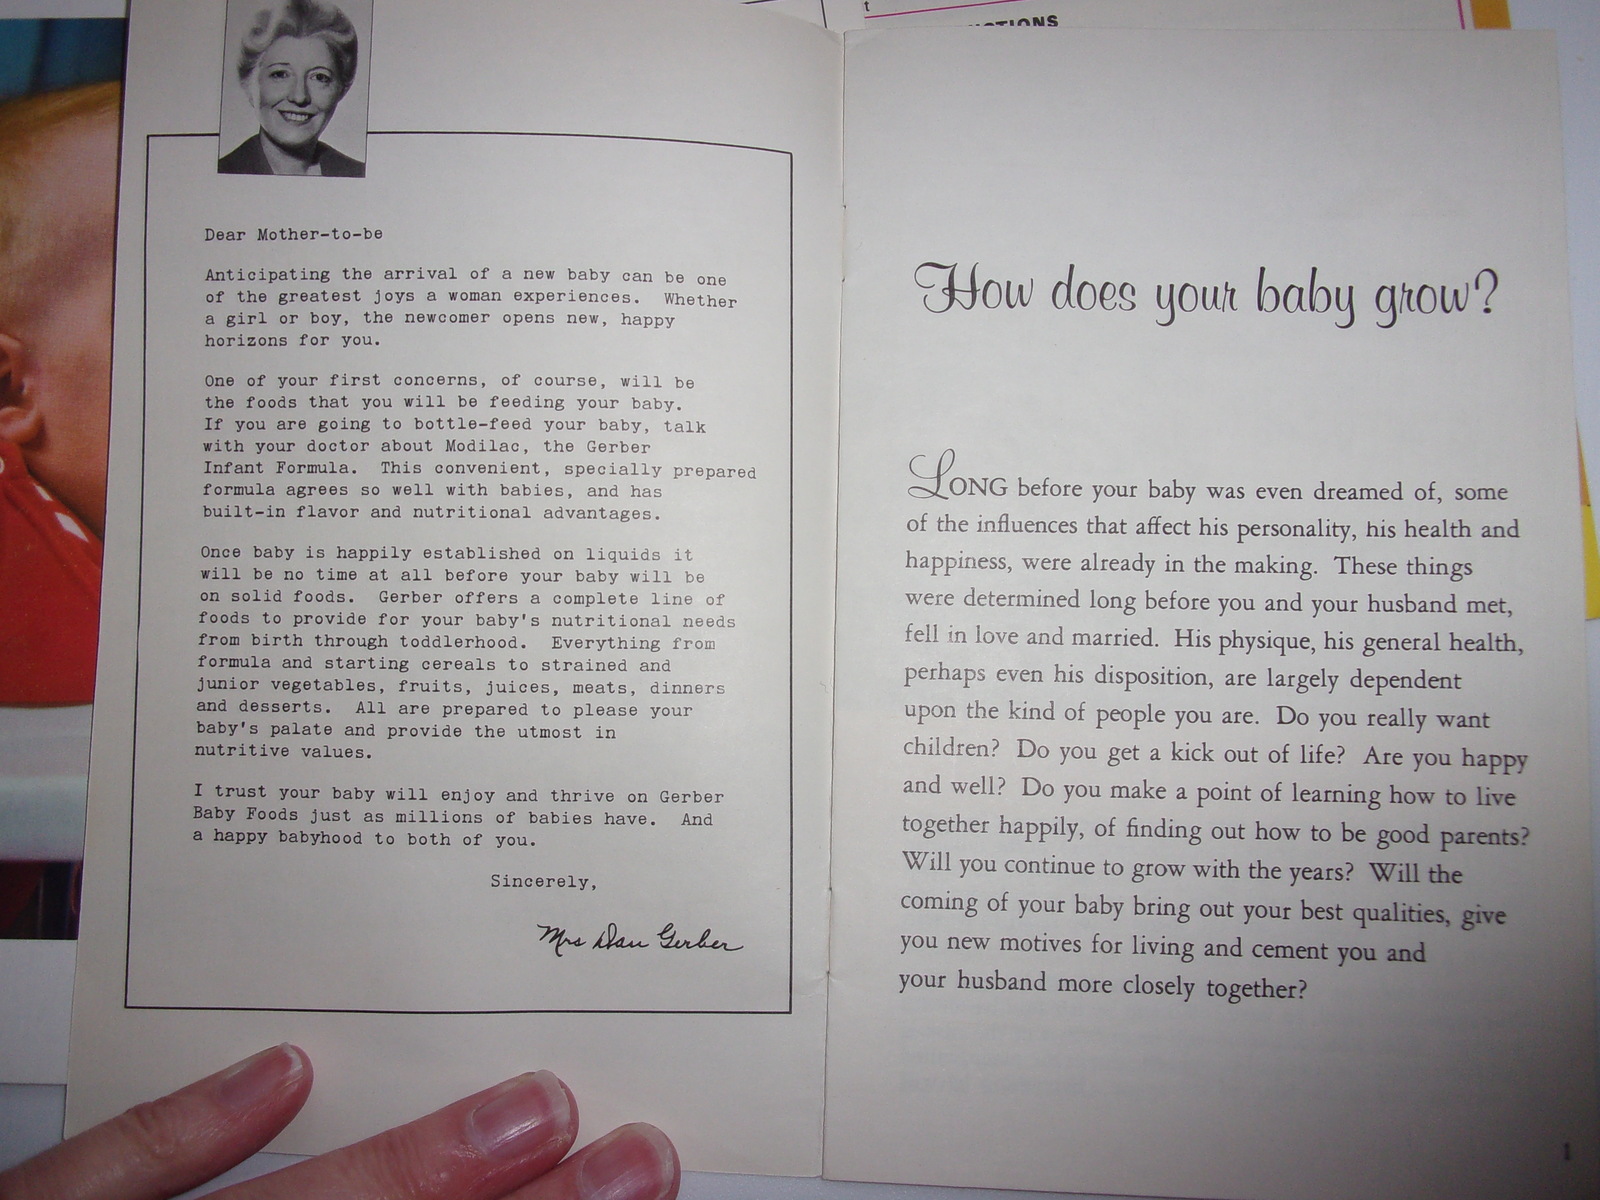 Dear Mother-to-be
Anticipating the arrival of a new baby can be one
of the greatest joys a woman experiences. Whether
a girl or boy, the newcomer opens new, happy
horizons for you.
One of your first concerns, of course, will be
the foods that you will be feeding your baby.
If you are going to bottle-feed your baby, talk
with your doctor about Modilac, the Gerber
Infant Formula. This convenient, specially prepared
formula agrees so well with babies, and has
built-in flavor and nutritional advantages.
Once baby is happily established on liquids it
will be no time at all before your baby will be
on solid foods. Gerber offers a complete line of
foods to provide for your baby's nutritional needs
from birth through toddlerhood. Everything from
formula and starting cereals to strained and
junior vegetables, fruits, juices, meats, dinners
and desserts. All are prepared to please your
baby's palate and provide the utmost in
nutritive values.
I trust your baby will enjoy and thrive on Gerber
Baby Foods just as millions of babies have. And
a happy babyhood to both of you.
Sincerely,
Mrs Dan Gerber
How does your baby grow?
LONG before your baby was even dreamed of, some
of the influences that affect his personality, his health and
happiness, were already in the making. These things
were determined long before you and your husband met,
fell in love and married. His physique, his general health,
perhaps even his disposition, are largely dependent
upon the kind of people you are. Do you really want
children? Do you get a kick out of life? Are you happy
and well? Do you make a point of learning how to live
together happily, of finding out how to be good parents?
Will you continue to grow with the years? Will the
coming of your baby bring out your best qualities, give
you new motives for living and cement you and
your husband more closely together?
1